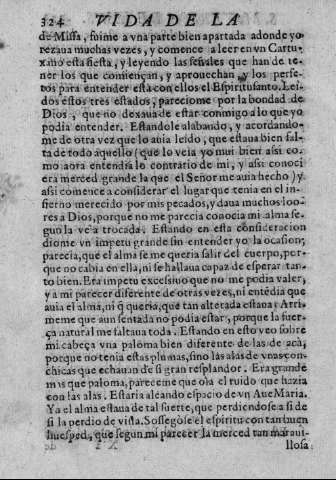 324 VIDA DE LA
de Missa, fuime a vna parte bien apartada adonde yo
rezaua muchas vezes, y comence a leer en vn Cartu-
xano esta fiesta, y leyendo las señales que han de te-
ner los que comiençan, y aprouechan y los perfe-
tos para entender esta con ellos el Espiritusanto. Lei-
dos estos tres estados, pareciome por la bondad de
Dios, que no dexaua de estar conmigo a lo que yo
podia entender. Estandole alabando, y acordando-
me de otra vez que lo auia leido, que estaua bien fal-
ta de todo aquello (que lo veia yo mui bien assi co-
mo aora entendia lo contrario de mi, y assi conoci
era merced grande la que el Señor me auia hecho) y
assi comence a considerar el lugar que tenia en el in-
fierno merecido por mis pecados, y daua muchos loo-
res a Dios, porque no me parecia conocia mi alma se-
gun la veia trocada. Estando en esta consideracion
diome vn impetu grande sin entender yo la ocasion;
parecia, que el alma se me queria salir del cuerpo, por-
que no cabia en ella, ni se hallaua capaz de esperar tan-
to bien. Era impetu excessiuo que no me podia valer,
y a mi parecer diferente de otras vezes, ni entēdia que
auia el alma, ni q̄ queria, que tan alterada estaua: Arri-
meme que aun sentada no podia estar, porque la fuer-
ça natural me faltaua toda. Estando en esto veo sobre
mi cabeça vna paloma bien diferente de las de acà,
porque no tenia estas plumas, sino las alas de vnas con-
chicas que echauan de si gran resplandor. Era grande
mas que paloma, pareceme que oia el ruido que hazia
con las alas. Estaria aleando espacio de vn Aue Maria.
Ya el alma estaua de tal suerte, que perdiendose a si de
si la perdio de vista. Sossegose el espiritu con tan buen
huesped, que segun mi parecer la merced tan maraui-
llosa